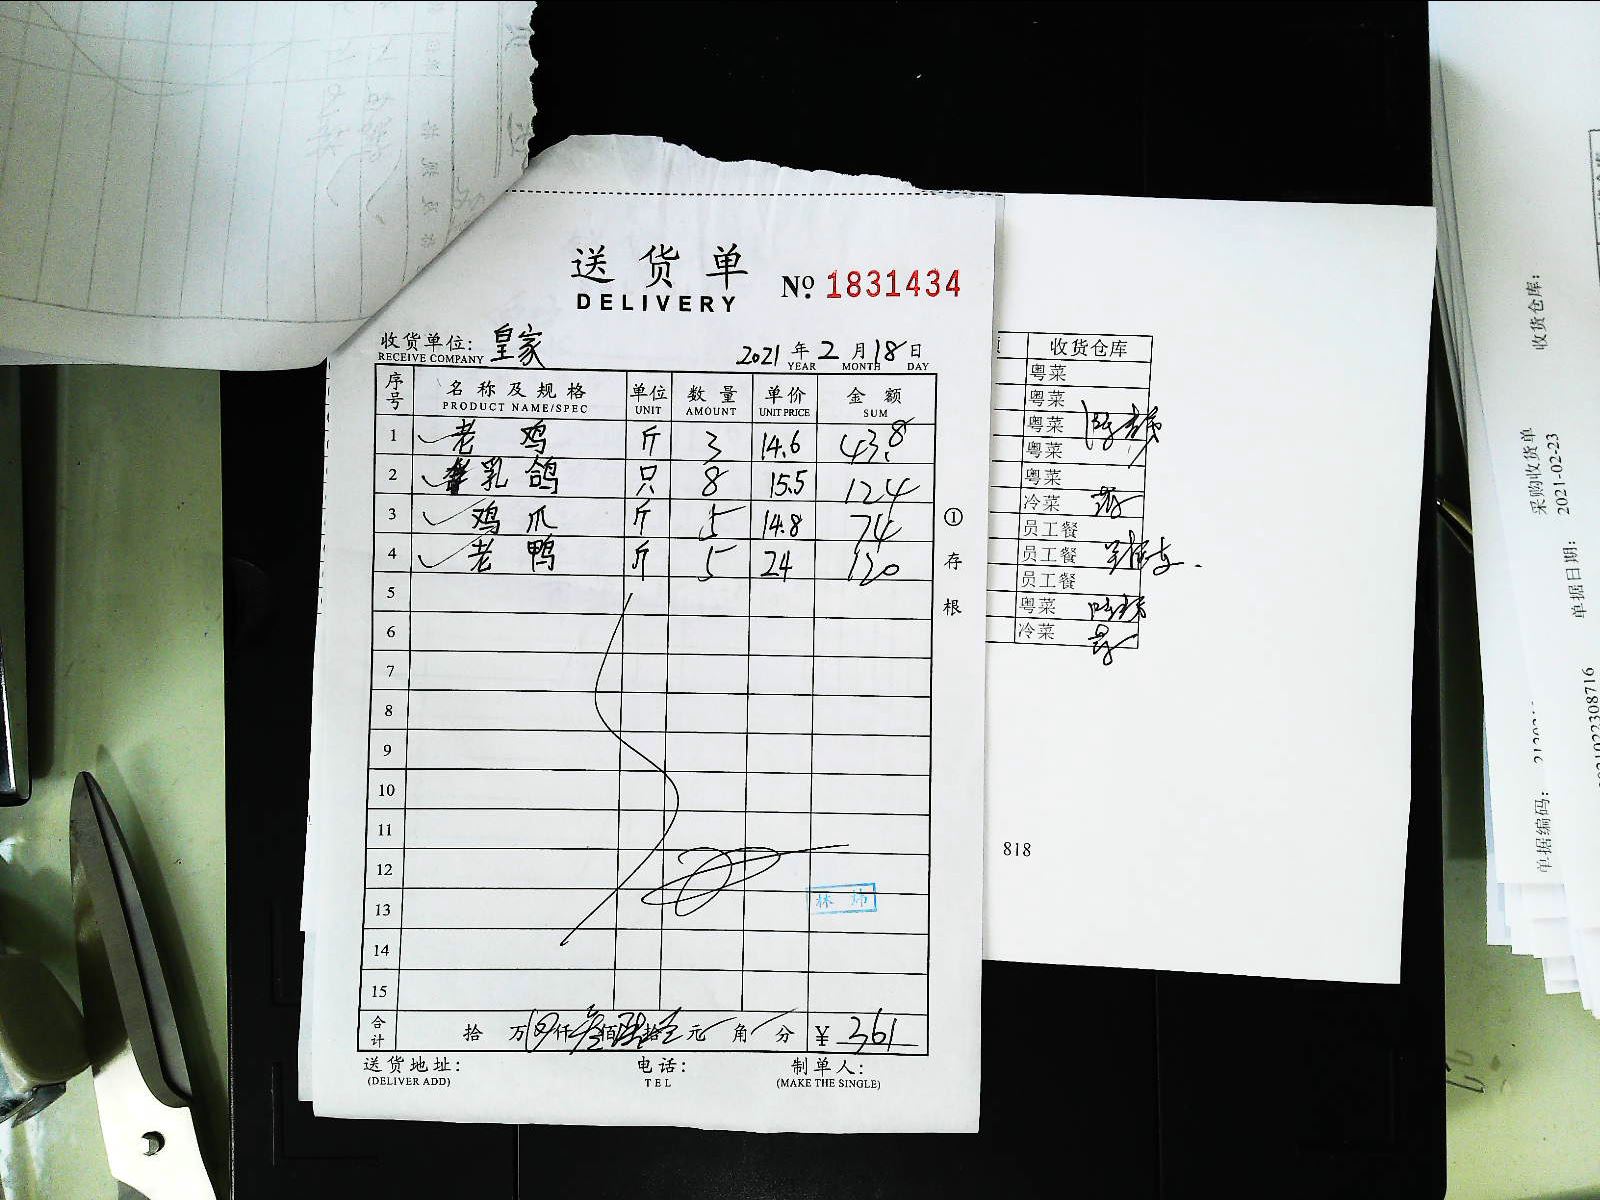 送货单
DELIVERY
No. 1831434
收货单位: 皇家
RECEIVE COMPANY
2021 年 2 月 18 日
YEAR MONTH DAY
序号 名称及规格 单位 数量 单价 金额
PRODUCT NAME/SPEC UNIT AMOUNT UNIT PRICE SUM
1 老鸡 斤 3 14.6 43.8
2 乳鸽 只 8 15.5 124
3 鸡爪 斤 5 14.8 74
4 老鸭 斤 5 24 120
5
6
7
8
9
10
11
12
13
14
15
林炜
合计 拾 万 仟 叁佰 陆拾 壹元 角 分 ¥ 361
送货地址: 电话: 制单人:
(DELIVER ADD) TEL (MAKE THE SINGLE)
① 存根
收货仓库
粤菜
粤菜
粤菜
粤菜
粤菜
冷菜
员工餐
员工餐
员工餐
粤菜
冷菜
818
采购收货单
收货仓库:
单据日期: 2021-02-23
单据编码: